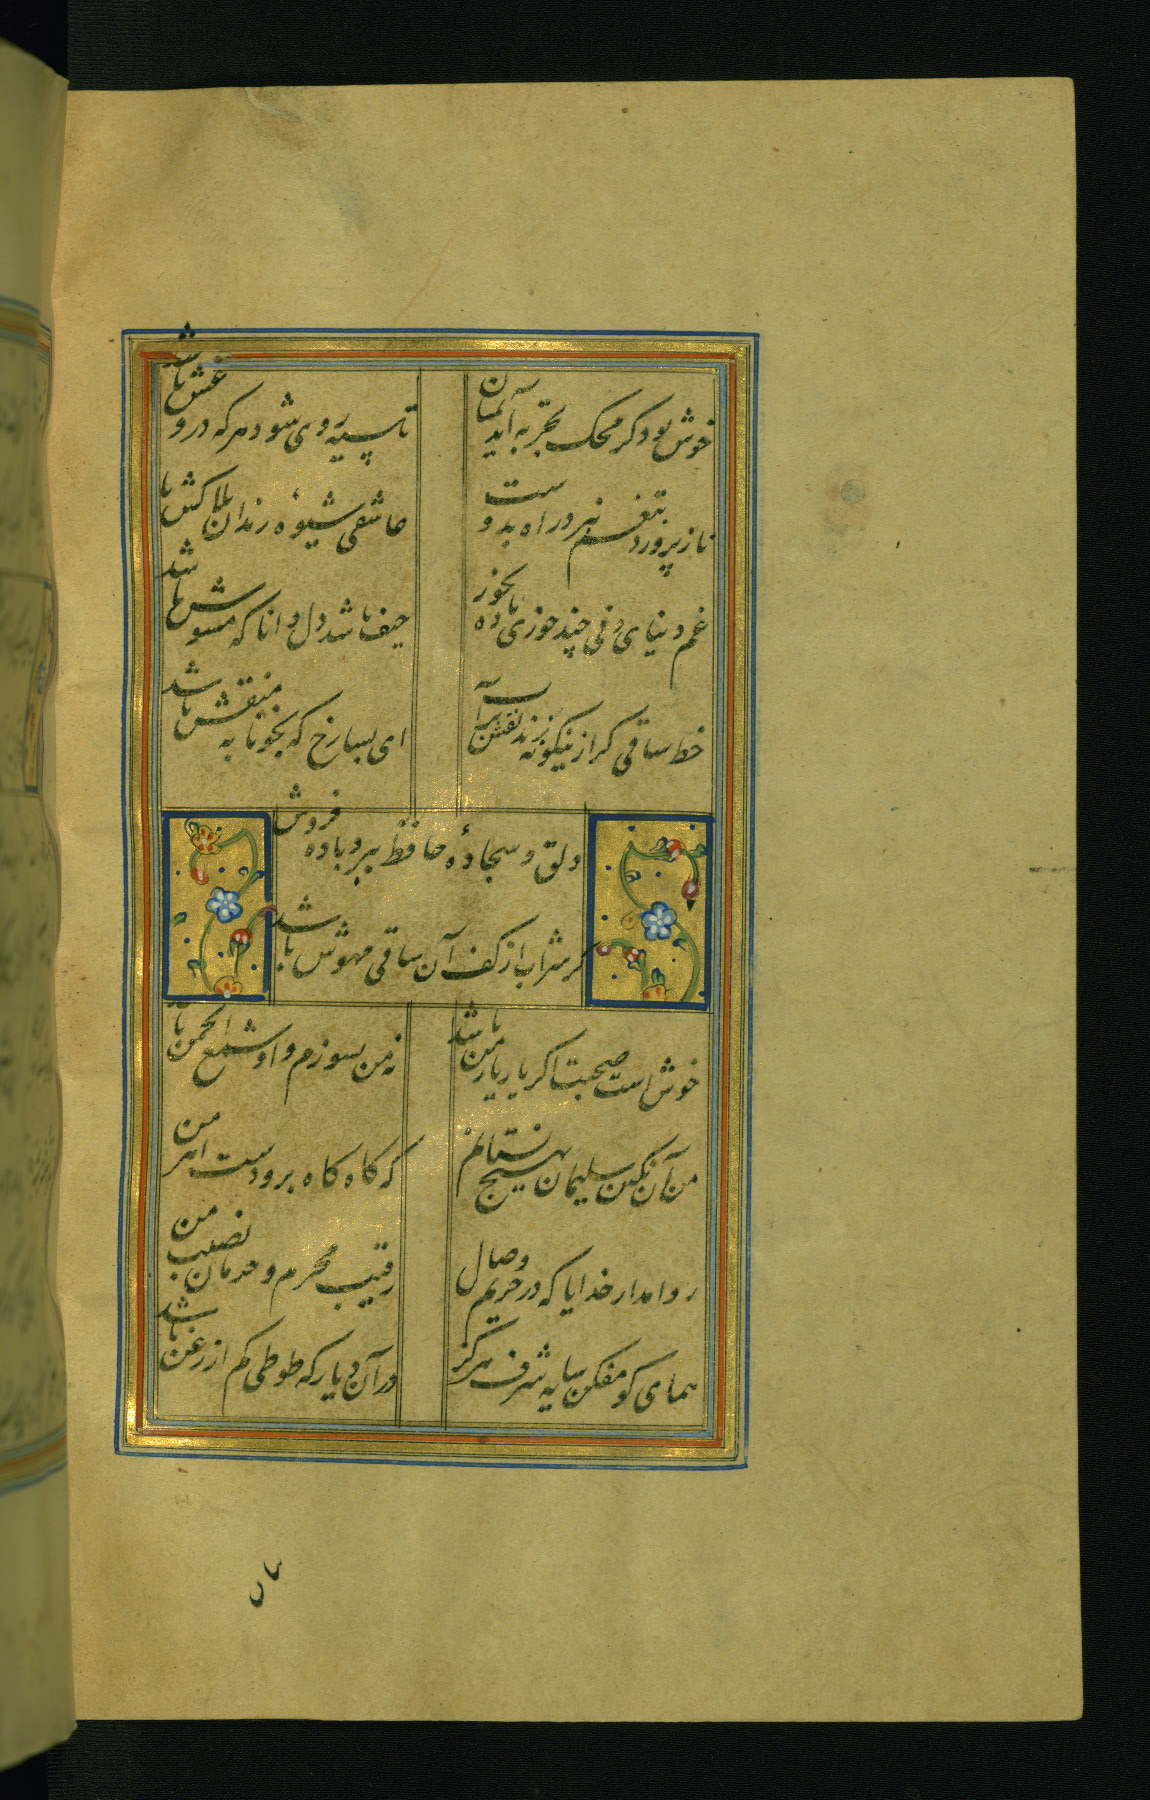 خوش بود گر محک تجربه آید بمیان
تا سیه روی شود هر که درو غش باشد
ناز پرورد تنعم نبرد راه بدوست
عاشقی شیوهٔ رندان بلاکش باشد
غم دنیای دنی چند خوری باده بخور
حیف باشد دل دانا که مشوش باشد
خط ساقی گر ازینگونه زند نقش بر آب
ای بسا رخ که بخونابه منقش باشد
دلق و سجادهٔ حافظ ببرد باده فروش
گر شراب از کف آن ساقی مهوش باشد
خوش است صحبت اگر یار یار من باشد
نه من بسوزم و او شمع انجمن باشد
من آن نگین سلیمان بهیچ نستانم
که گاه گاه برو دست اهرمن
روا مدار خدایا که در حریم وصال
رقیب محرم و حرمان نصیب من باشد
همای گو مفکن سایه شرف هرگز
در آن دیار که طوطی کم از زغن باشد